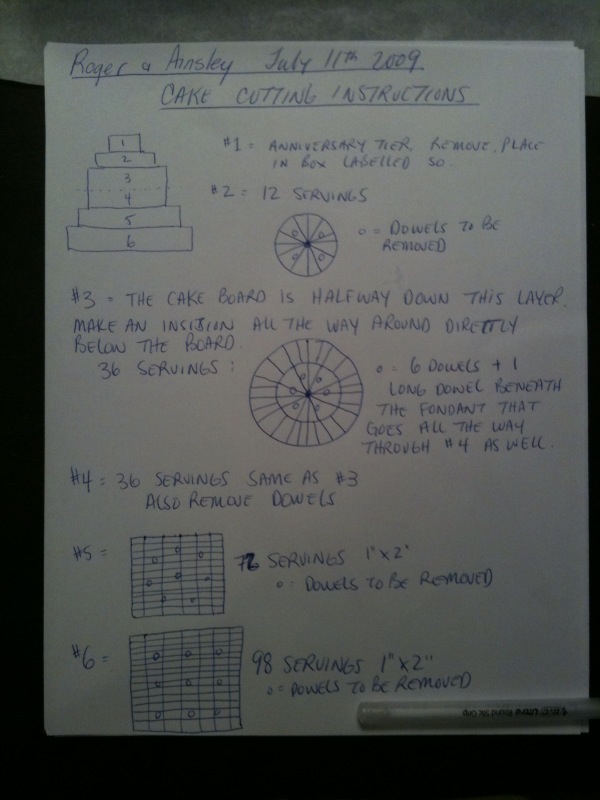 Roger & Ainsley July 11th 2009
CAKE CUTTING INSTRUCTIONS
1
2
3
4
5
6
#1 = ANNIVERSARY TIER, REMOVE, PLACE
IN BOX LABELLED SO.
#2 = 12 SERVINGS
o = DOWELS TO BE
REMOVED
#3 = THE CAKE BOARD IS HALFWAY DOWN THIS LAYER.
MAKE AN INSISION ALL THE WAY AROUND DIRECTLY
BELOW THE BOARD.
36 SERVINGS:
o = 6 DOWELS + 1
LONG DOWEL BENEATH
THE FONDANT THAT
GOES ALL THE WAY
THROUGH #4 AS WELL.
#4 = 36 SERVINGS SAME AS #3
ALSO REMOVE DOWELS
#5 =
72 SERVINGS 1"x2"
o = DOWELS TO BE REMOVED
#6 =
98 SERVINGS 1"x2"
o = DOWELS TO BE REMOVED
Round Stic Grip